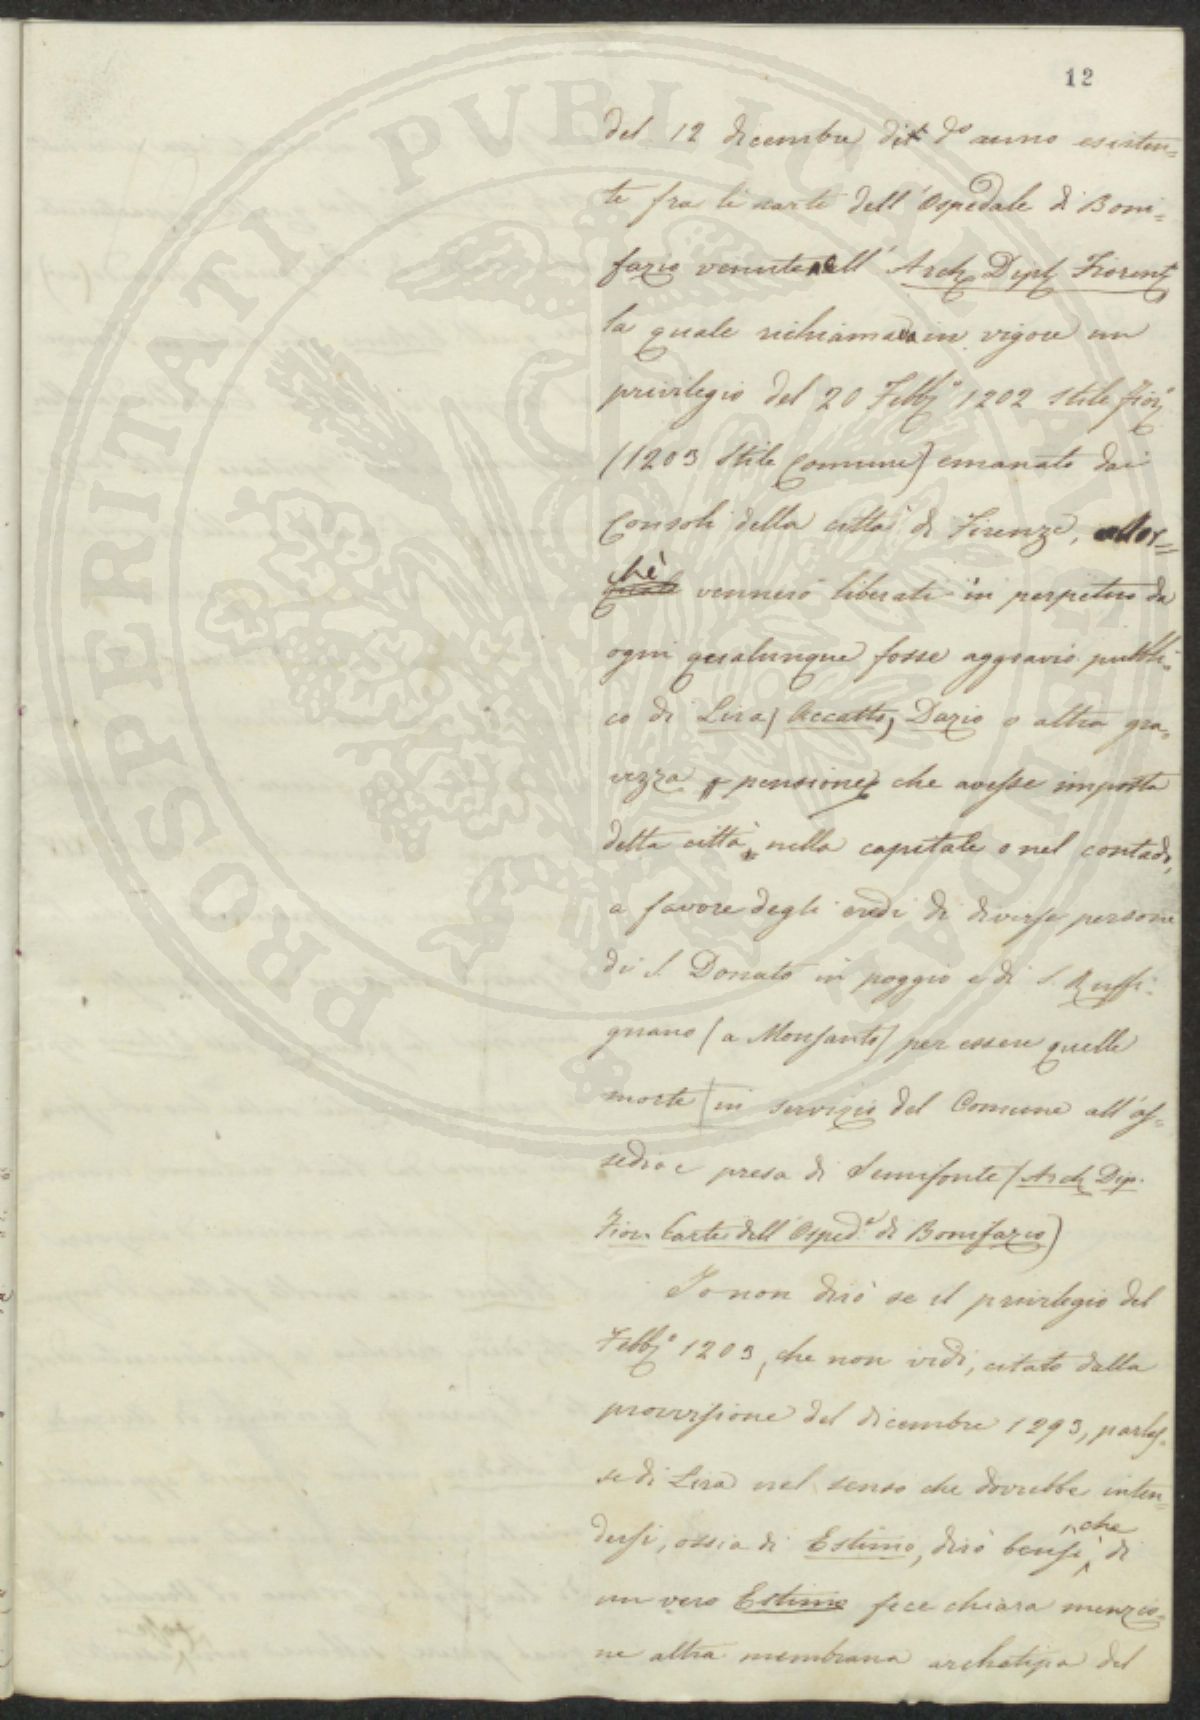 12
del 12 dicembre det° d° anno esisten=
te fra le carte dell'Ospedale di Boni=
fazio venute all' Arch. Dipl. Fiorent.
la quale richiamava in vigore un
privilegio del 20 Febb.° 1202 stile fior.°
(1203 stile Comune) emanato dai
Consoli della città di Firenze, allor=
chè vennero liberati in perpetuo da
ogni qualunque fosse aggravio pubbli=
co di Lira, Accatto, Dazio o altra gra=
vezza o pensione che avesse imposta
detta città, nella capitale o nel contado,
a favore degli eredi di diverse persone
di S. Donato in poggio e di S. Ruffi=
gnano (a Monsanto) per essere quelle
morte in servizio del Comune all'as=
sedio e presa di Semifonte (Arch. Dip.
Fior. Carte dell'Osped.e di Bonifazio)
Io non dirò se il privilegio del
Febb.° 1203, che non vidi, citato dalla
provvisione del dicembre 1293, parlas=
se di Lira nel senso che dovrebbe inten=
dersi, ossia di Estimo, dirò bensì, che di
un vero Estimo fece chiara menzio=
ne altra membrana archetipa del
PROSPERITATI PUBLICAE